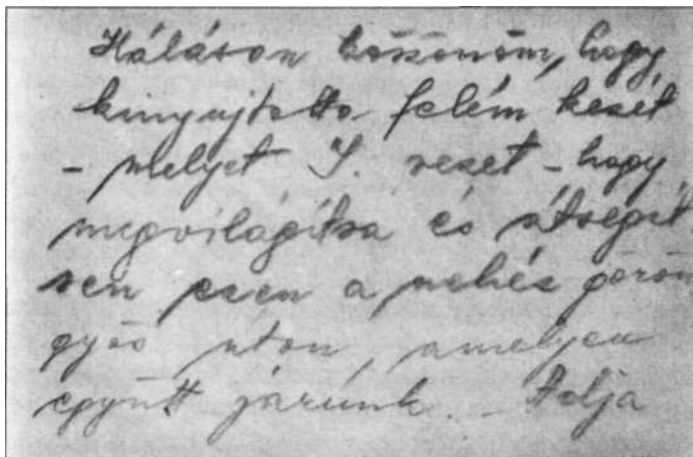 Hálásan köszönöm, hogy
kinyujtotta felém kezét
- melyet I. vezet - hogy
megvilágítsa és átsegít-
sen ezen a nehéz görön
gyös úton, amelyen
együtt járunk. - Adja